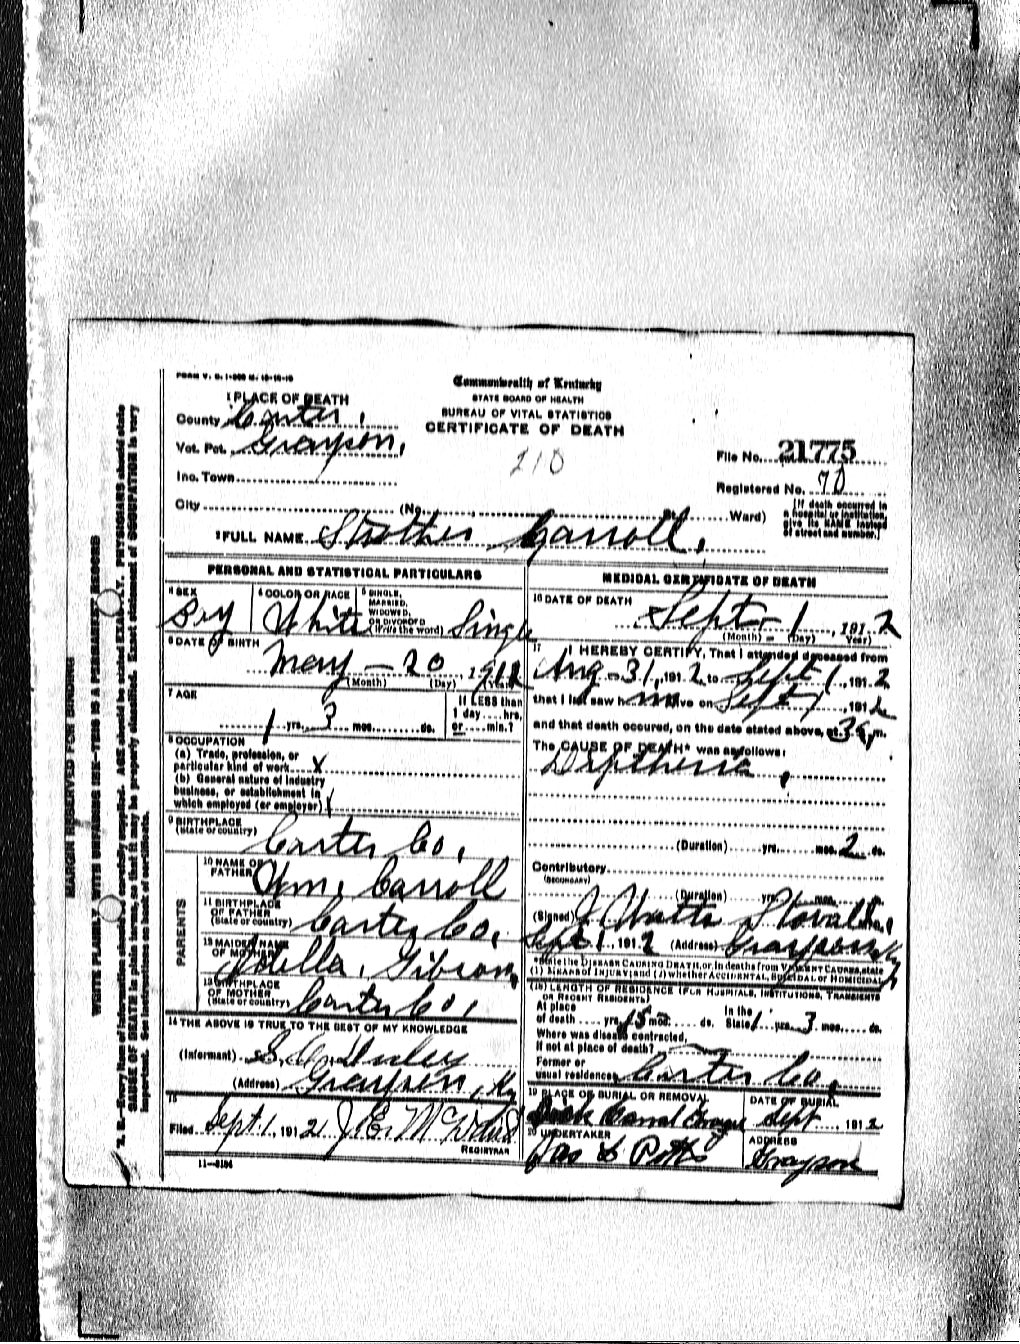 FORM V. S. 1-
Commonwealth of Kentucky
STATE BOARD OF HEALTH
BUREAU OF VITAL STATISTICS
CERTIFICATE OF DEATH
1 PLACE OF DEATH
County Carter,
Vot. Pct. Grayson,
Inc. Town
City (No. St. Ward)
210
File No. 21775
Registered No. 70
[If death occurred in
a hospital or institution,
give its NAME instead
of street and number.]
2 FULL NAME Strother Carroll,
PERSONAL AND STATISTICAL PARTICULARS
3 SEX
Boy
4 COLOR OR RACE
White
5 SINGLE,
MARRIED,
WIDOWED,
OR DIVORCED
(Write the word) Single
6 DATE OF BIRTH
May - 20, 1911
(Month) (Day) (Year)
7 AGE
1 yrs. 3 mos. ds.
If LESS than
1 day ... hrs.
or ... min.?
8 OCCUPATION
(a) Trade, profession, or
particular kind of work x
(b) General nature of industry
business, or establishment in
which employed (or employer)
9 BIRTHPLACE
(State or country)
Carter Co,
PARENTS
10 NAME OF
FATHER
Wm. Carroll
11 BIRTHPLACE
OF FATHER
(State or country)
Carter Co,
12 MAIDEN NAME
OF MOTHER
Gibson,
13 BIRTHPLACE
OF MOTHER
(State or country)
Carter Co,
14 THE ABOVE IS TRUE TO THE BEST OF MY KNOWLEDGE
(Informant)
(Address) Grayson, Ky
15
Filed Sept. 1, 1912 J. E. McDavid
REGISTRAR
11-5184
MEDICAL CERTIFICATE OF DEATH
16 DATE OF DEATH
Sept - 1, 1912
(Month) (Day) (Year)
17 I HEREBY CERTIFY, That I attended deceased from
Aug - 31, 1912 to Sept 1, 1912
that I last saw him alive on Sept 1, 1912
and that death occured, on the date stated above, at m.
The CAUSE OF DEATH* was as follows:
Diptheria,
(Duration) yrs. mos. 2 ds.
Contributory
(SECONDARY)
(Duration) yrs. mos. ds.
(Signed) J Watts Stovall
Sept. 1, 1912 (Address) Grayson Ky
*State the DISEASE CAUSING DEATH, or, in deaths from VIOLENT CAUSES, state
(1) MEANS OF INJURY; and (2) whether ACCIDENTAL, SUICIDAL, or HOMICIDAL
(18) LENGTH OF RESIDENCE (FOR HOSPITALS, INSTITUTIONS, TRANSIENTS
OR RECENT RESIDENTS)
At place
of death yrs. 15 mos. ds.
In the
State 1 yrs. 3 mos. ds.
Where was disease contracted,
if not at place of death?
Former or
usual residence Carter Co,
19 PLACE OF BURIAL OR REMOVAL
Dick
DATE OF BURIAL
Sept 1912
20 UNDERTAKER
Jas & Potts
ADDRESS
Grayson
MARGIN RESERVED FOR BINDING
WRITE PLAINLY, WITH UNFADING INK—THIS IS A PERMANENT RECORD
N. B.—Every item of information should be carefully supplied. AGE should be stated EXACTLY. PHYSICIANS should state
CAUSE OF DEATH in plain terms, so that it may be properly classified. Exact statement of OCCUPATION is very
important. See instructions on back of certificate.